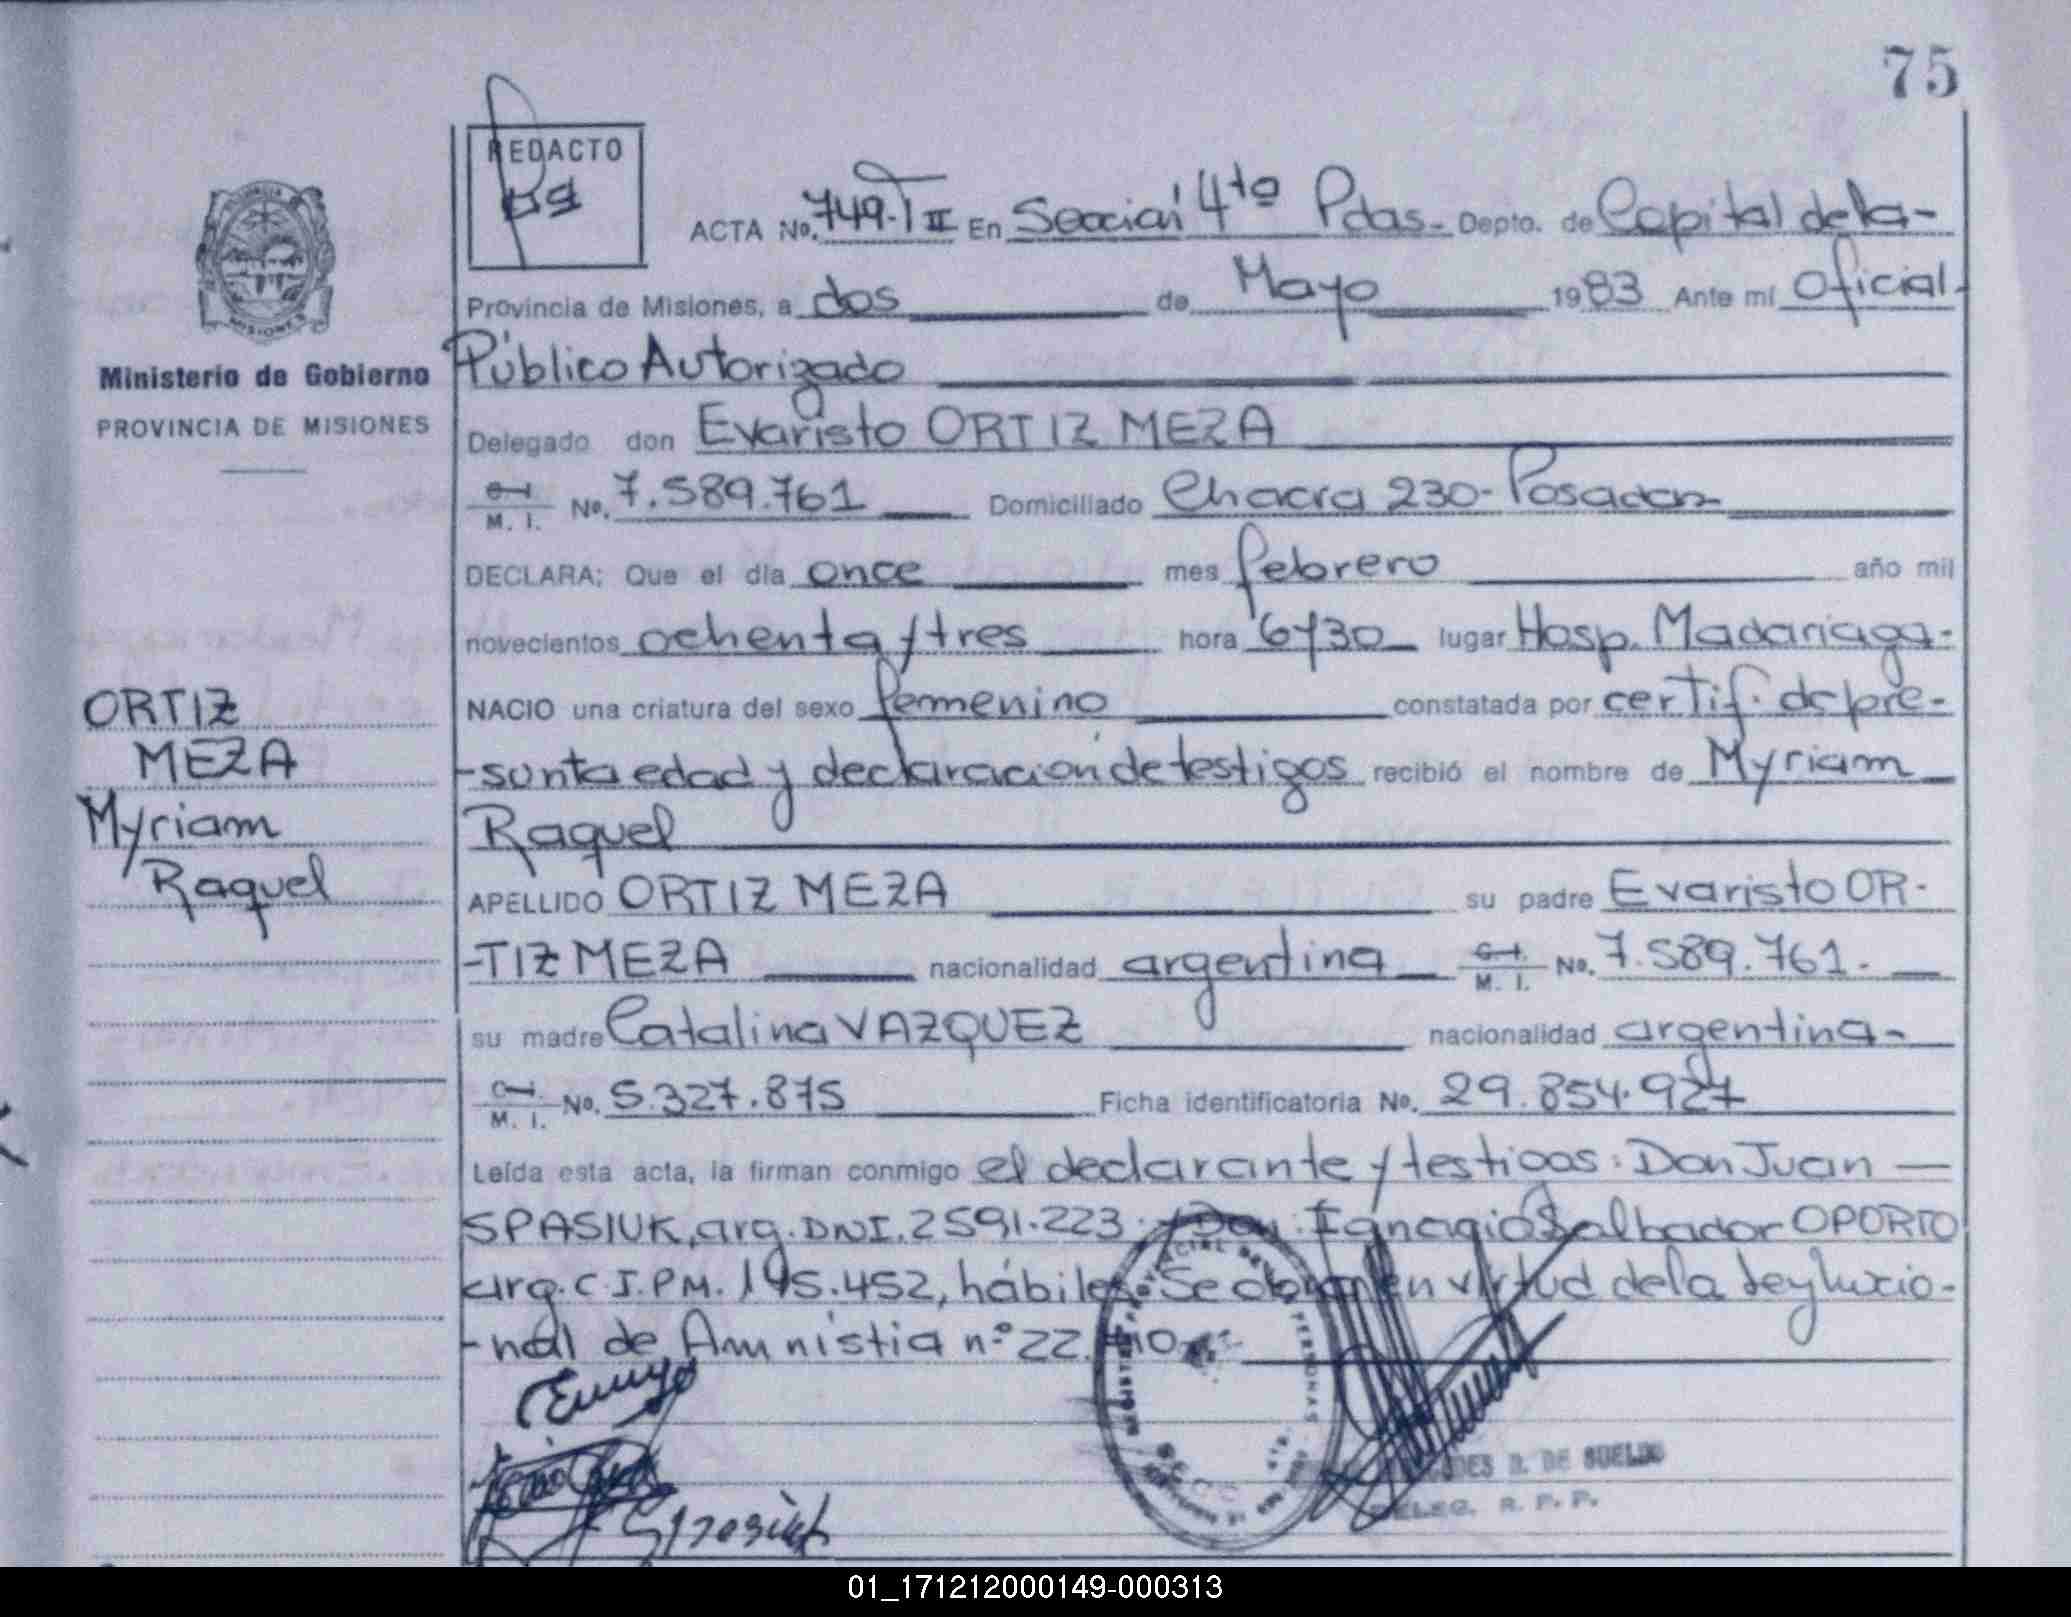 75
REDACTO
ACTA No. 749-T II En Sección 4ta Pdas. Depto. de Capital de la-
Provincia de Misiones, a dos de Mayo 1983 Ante mí Oficial
Ministerio de Gobierno
PROVINCIA DE MISIONES
Público Autorizado
Delegado don Evaristo ORTIZ MEZA
M. I. No. 7.589.761 Domiciliado Chacra 230- Posadas
DECLARA: Que el día once mes febrero año mil
novecientos ochenta y tres hora 6y30 lugar Hosp. Madariaga-
NACIO una criatura del sexo femenino constatada por certif. de pre-
-sunta edad y declaración de testigos recibió el nombre de Myriam
Raquel
APELLIDO ORTIZ MEZA su padre Evaristo OR-
-TIZ MEZA nacionalidad argentina M. I. No. 7.589.761.
su madre Catalina VAZQUEZ nacionalidad argentina-
M. I. No. 5.327.875 Ficha identificatoria No. 29.854.927
Leída esta acta, la firman conmigo el declarante y testigos: Don Juan
SPASIUK, arg. DNI. 2591.223 y Don Ignacio Salbador OPORTO
arg. C.I.P.M. 195.452, hábiles. Se labra en virtud de la Ley
-nal de Amnistia n.º 22.
ORTIZ
MEZA
Myriam
Raquel
D. DE SUELDO
DELEG. R. P. P.
01_171212000149-000313